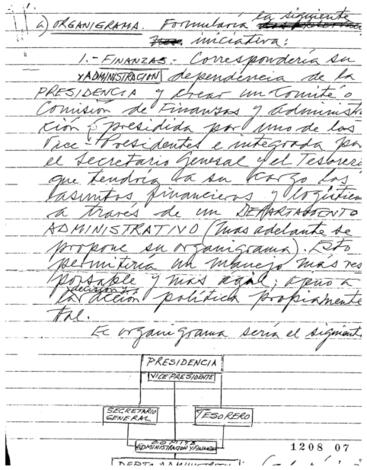 a) ORGANIGRAMA. Formularía la siguiente
iniciativa:
1.- FINANZAS.- Correspondería su
y ADMINISTRACION dependencia de la
PRESIDENCIA y crear un Comité o
Comisión de Finanzas y administra-
ción, presidida por uno de los
Vice-Presidentes e integrada por
el Secretario General y el Tesorero
que tendría a su cargo los
asuntos financieros y logísticos
a través de un DEPARTAMENTO
ADMINISTRATIVO (más adelante se
propone su organigrama). Esto
permitiría un manejo más res
ponsable y más ágil; apoyo a
la acción política propiamente
tal.
El organigrama sería el siguiente
PRESIDENCIA
VICE PRESIDENTE
SECRETARIO
GENERAL
TESORERO
COMITE
ADMINISTRACION Y FINANZAS
1208 07
DEPTO ADMINISTRATI